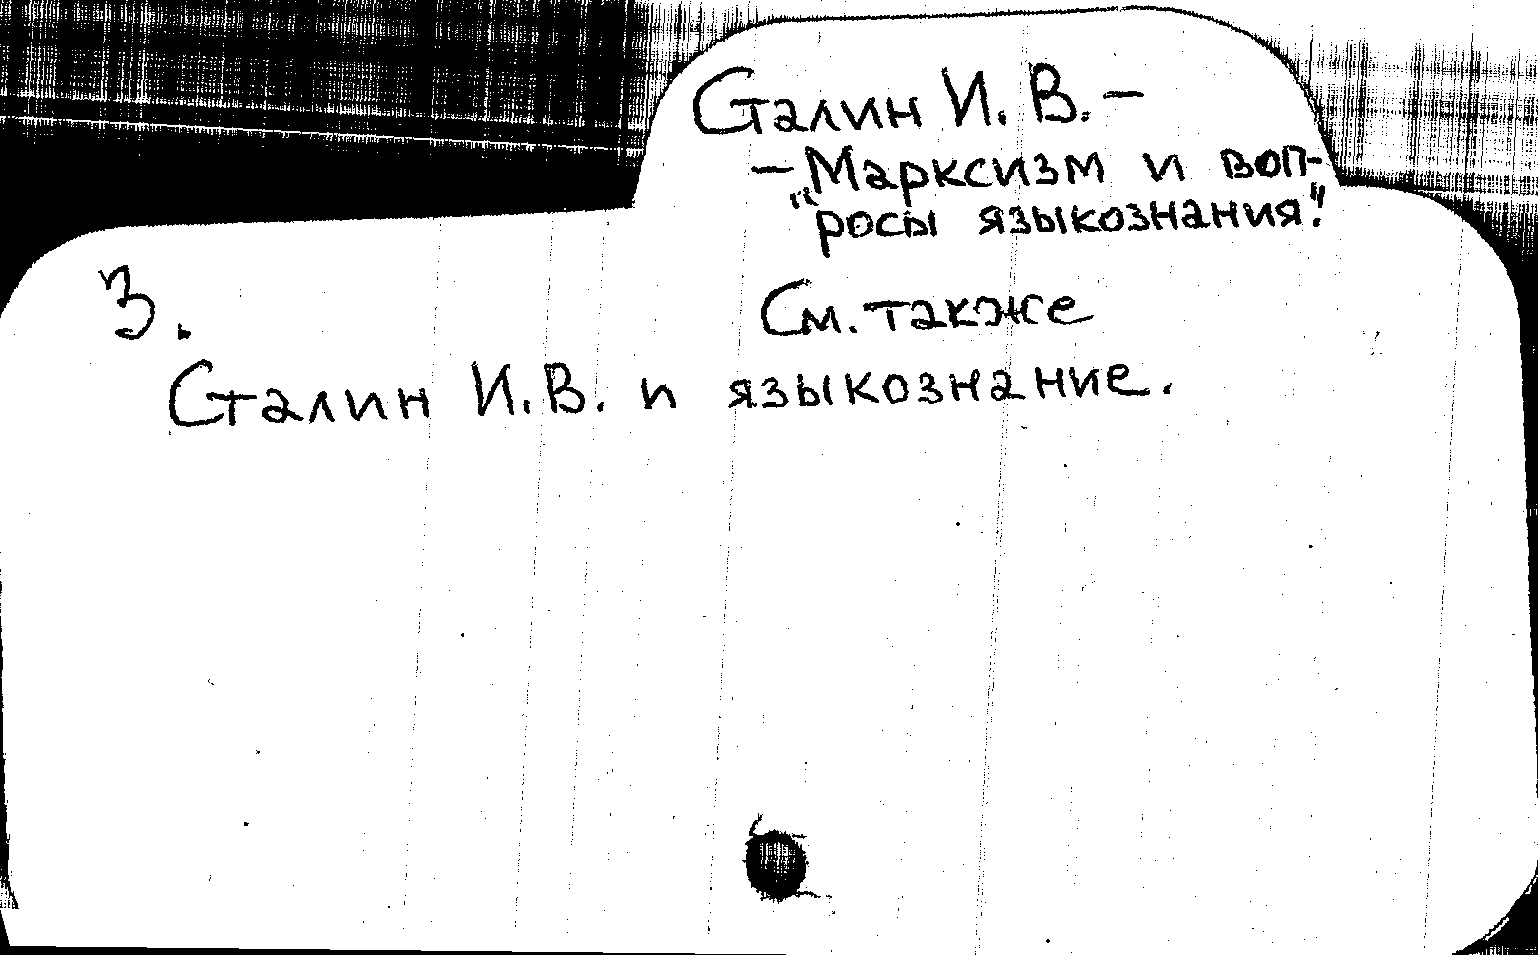 Сталин И. В. –
– "Марксизм и воп-
росы языкознания".
3.
См. также
Сталин И. В. и языкознание.